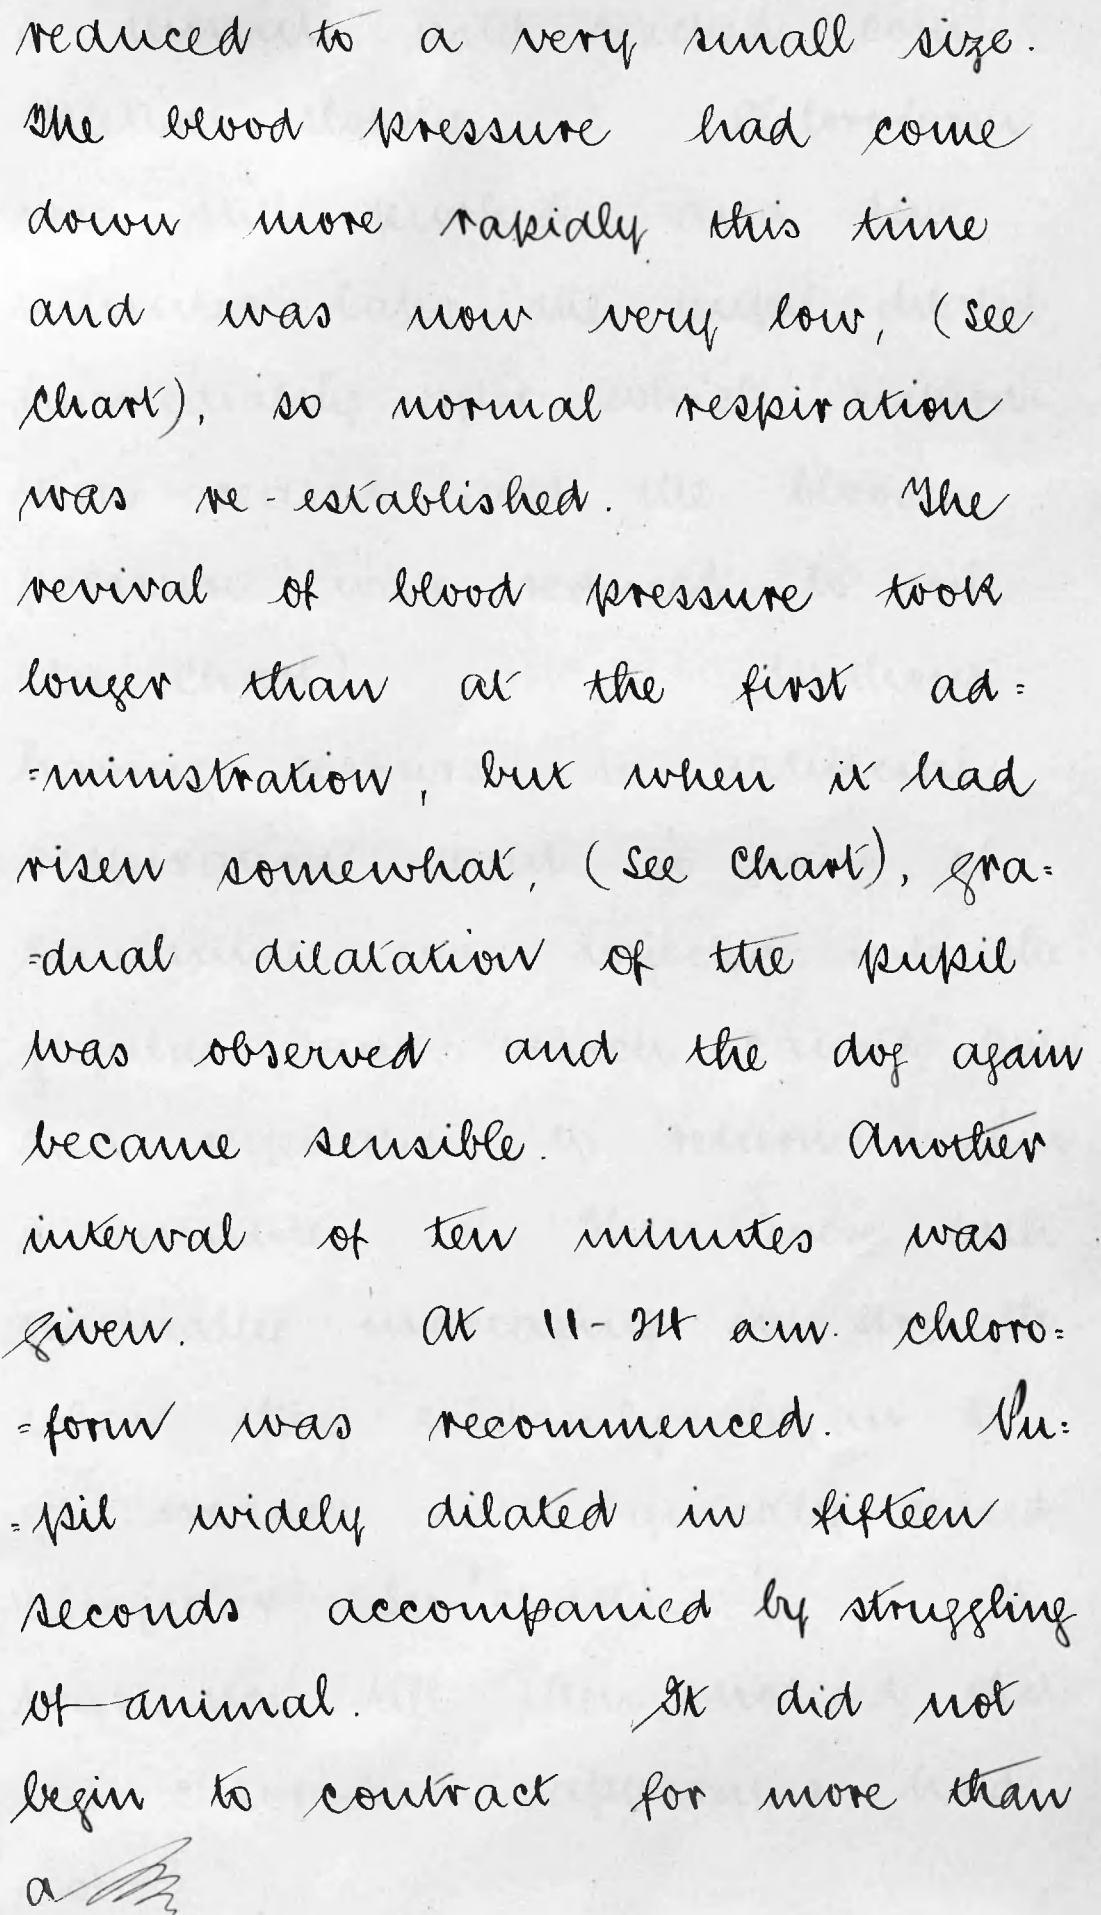 reduced to a very small size.
The blood pressure had come
down more rapidly this time
and was now very low, (See
Chart), so normal respiration
was re-established. The
revival of blood pressure took
longer than at the first ad=
=ministration, but when it had
risen somewhat, (See Chart), gra=
=dual dilatation of the pupil
was observed and the dog again
became sensible. Another
interval of ten minutes was
given. At 11-34 a.m. chloro=
=form was recommenced. Pu=
=pil widely dilated in fifteen
seconds accompanied by struggling
of animal. It did not
begin to contract for more than
a